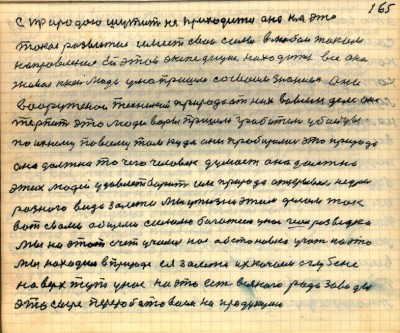 165
с природою шутит не приходится она на это
такая развитая имеет свои силы в любом таком
направлении в этой экспедиции находится все она
живая как люди у но пришли со своими знаниями они
вооружение техникой природа от них важны дела она
терпит это люди воры пришли грабители убийцы
по ихнему повсему там куда они пробирались это природа
она должна то чего человек думает она должна
этих людей удовлетворить им природа открывает недра
разного вида залежи мы у жизни этим делом так
вот своим общими силами богатеем у нас геолразведка
мы на этот счет ученые нас обстановка учит на это
мы находим в природе ея залежи их качаем с глубине
наверх тут у нас на это есть всякого рода заводы
это сырье переработывали на продукцию